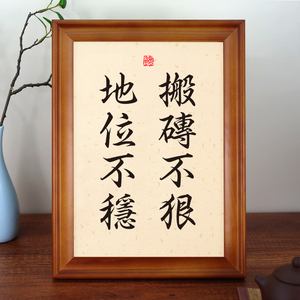 搬磚不狠
地位不穩